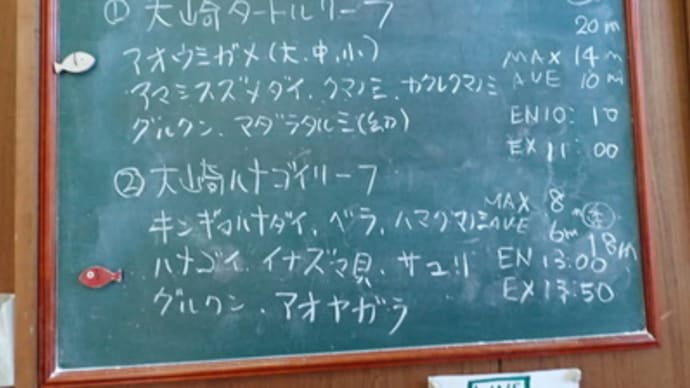 ① 大崎タートルリーフ
20m
アオウミガメ(大.中.小)
MAX 14m
アマミスズメダイ、クマノミ、カクレクマノミ
AVE 10m
グルクン、マダラタルミ(幼)
EN10:10
EX 11:00
② 大崎ハナゴイリーフ
MAX 8m
キンギョハナダイ、ベラ、ハマクマノミ
AVE 6m
18m
ハナゴイ、イナズマ貝、サヨリ
EN 13:00
グルクン、アオヤガラ
EX 13:50